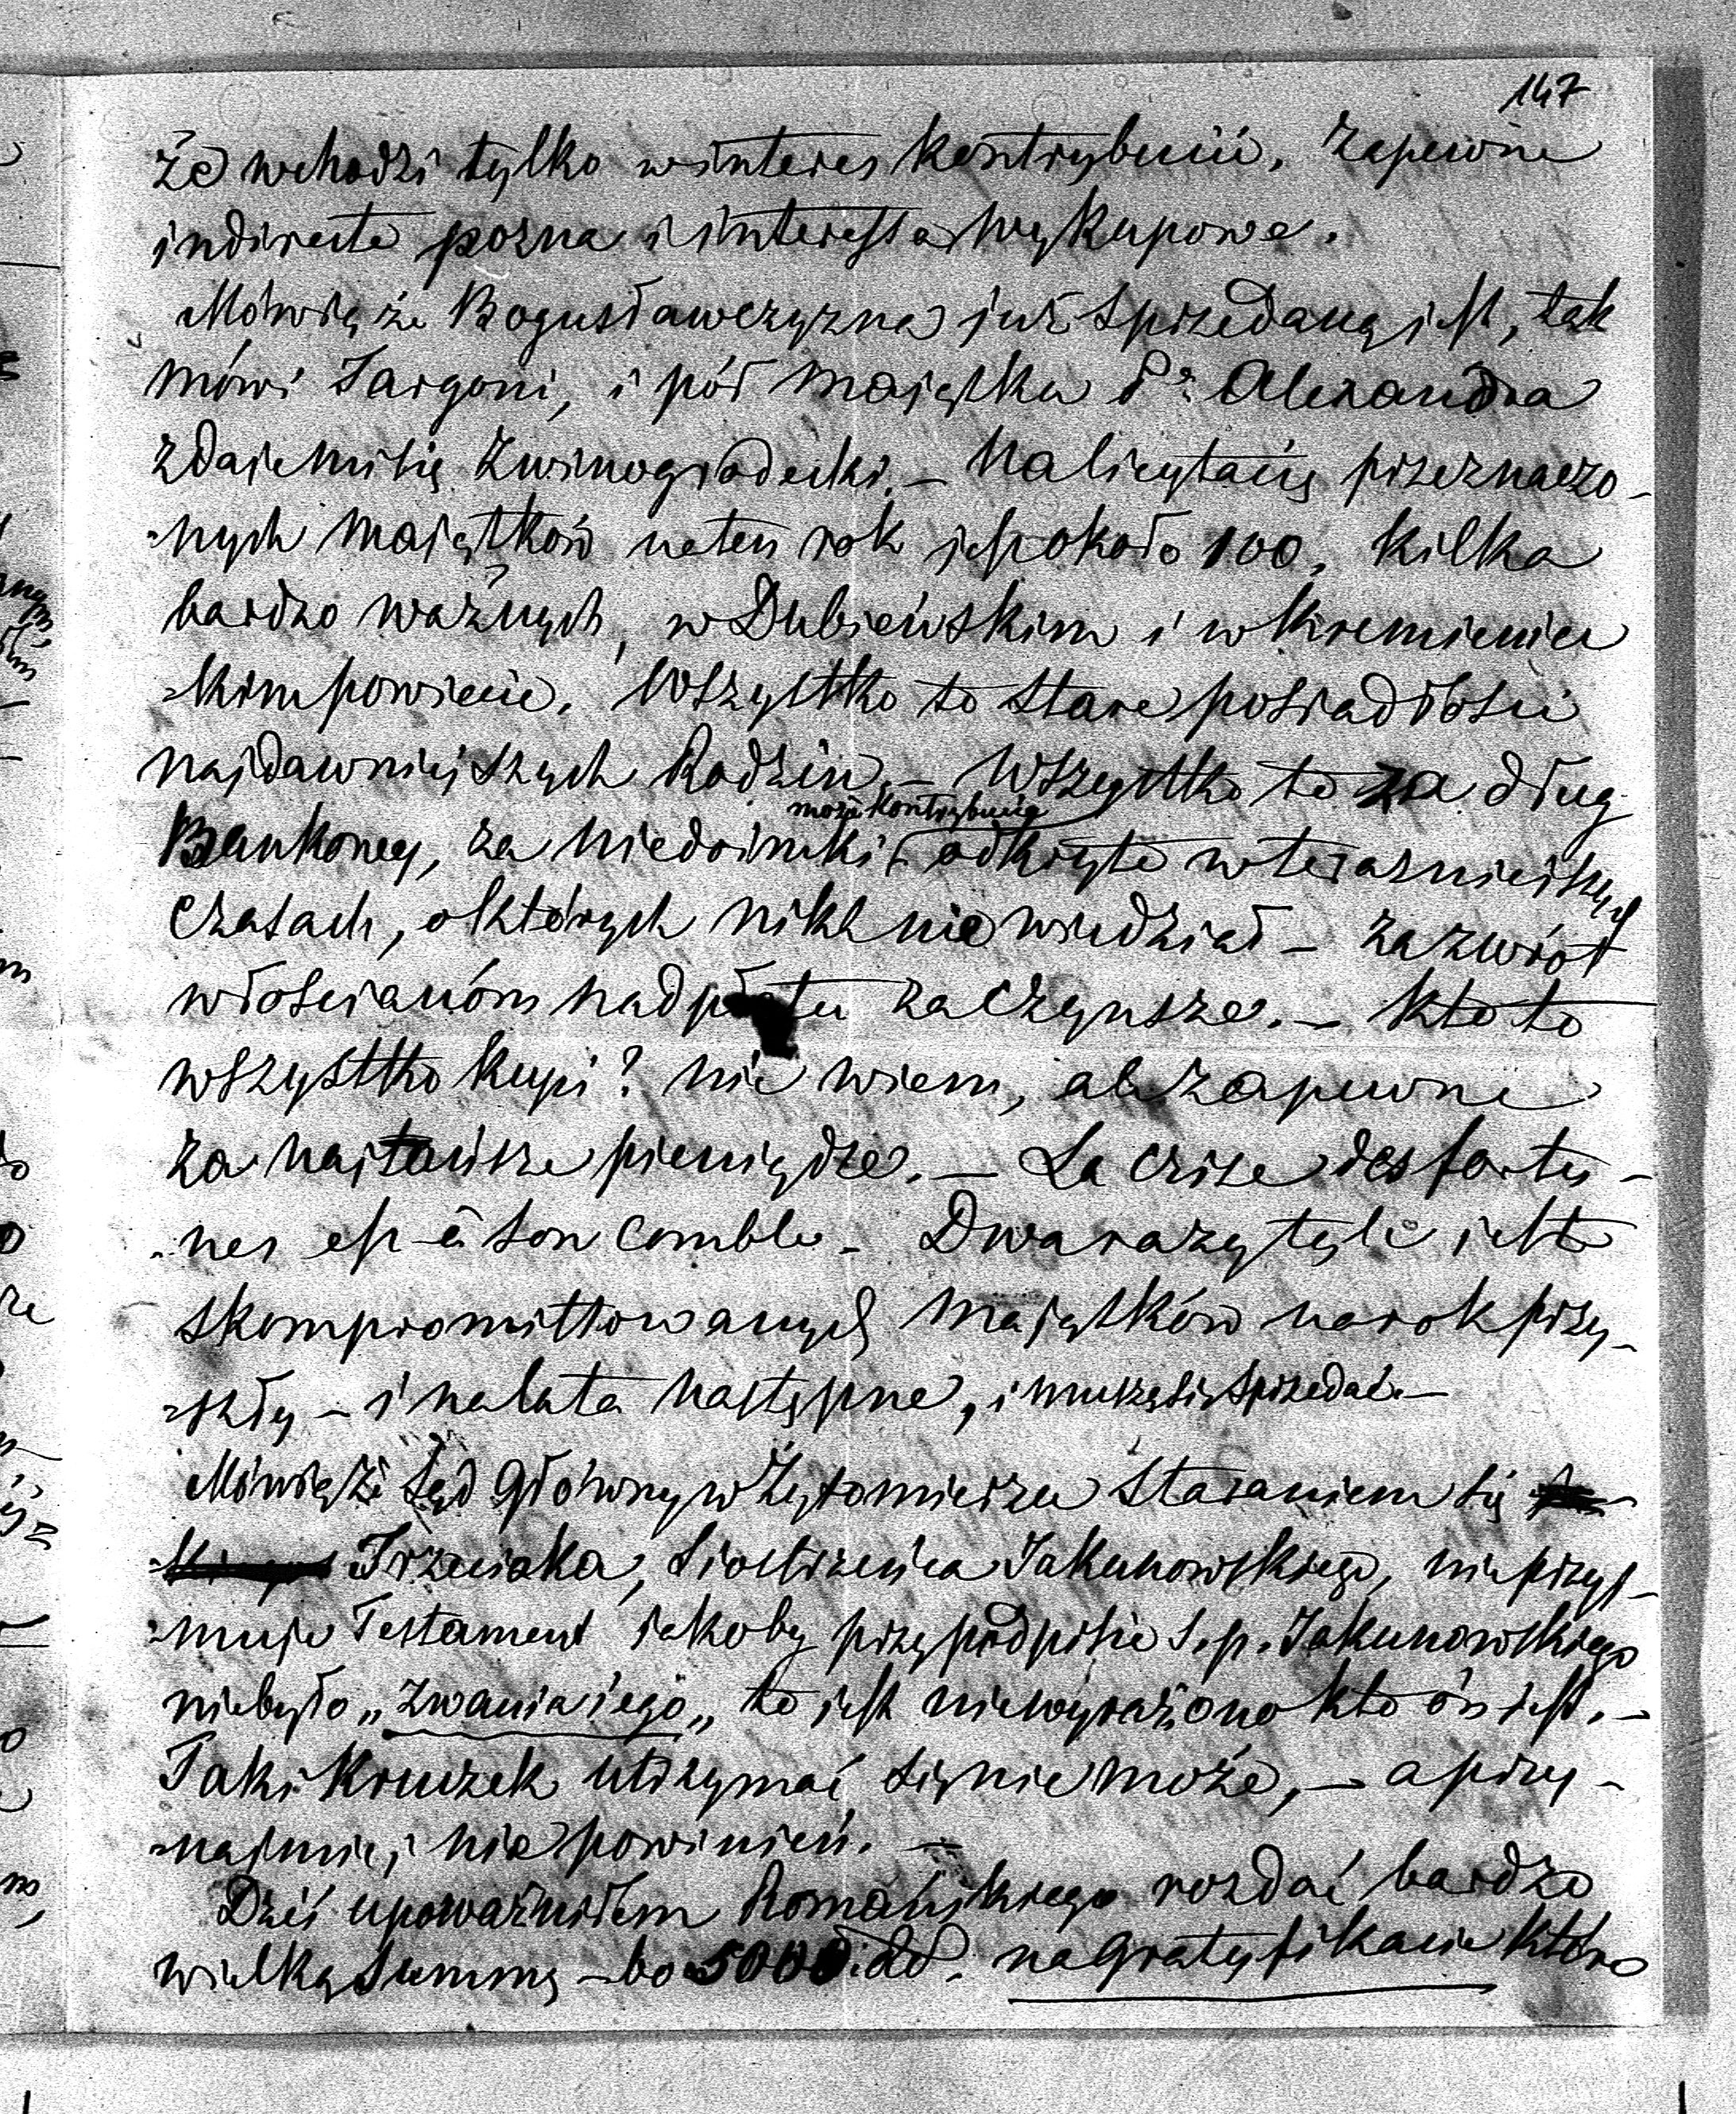 147
że wchodzi tylko w interes kontrybucii, zapewne
indirecte pozna i interessa wykupowe.
Mówią że Bogusławczyzna już sprzedaną jest, tak
mówi Jargoni, i pół majątku Pa Alexandra
zdaje mi się Zwinogrodecki. – Na licytacią przeznaczo-
-nych majątków na ten rok jest około 100, kilka
bardzo ważnych, w Dubieńskim i w Kremieniec
-kim powiecie. Wszystko to stare posiadłości
najdawniejszych Rodzin – Wszystko to za dług
może kontrybucią
Bankowy, za niedoimki i odkryte w teraznieiszych
czasach, o których nikt nie wiedział – za zwrót
włościanóm nadpłatu za czynsze. – Kto to
wszystko kupi? nie wiem, ale zapewne
za najtańsze pieniądze. – La crise des fortu-
-nes est à son comble – Dwa razy tyle jest
skompromittowanych majątków na rok przy-
-szły – i na lata następne, i muszą się sprzedać. –
Mówią że Sąd Główny w Żytomierzu staraniem się
Trzeciaka, siostrzeńca Jakunowskiego, nie przyj-
-muje Testament jakoby przy podpisie S.p. Jakunowskiego
niebyło „zwania iego„ to jest niewyrażono kto ón jest. –
Taki Kruczek utrzymać się nie może, – a przy-
-najmniej nie powinien. –
Dziś upoważniłem Romańskiego rozdać bardzo
wielką summę – bo 5000 na gratyfikacie które